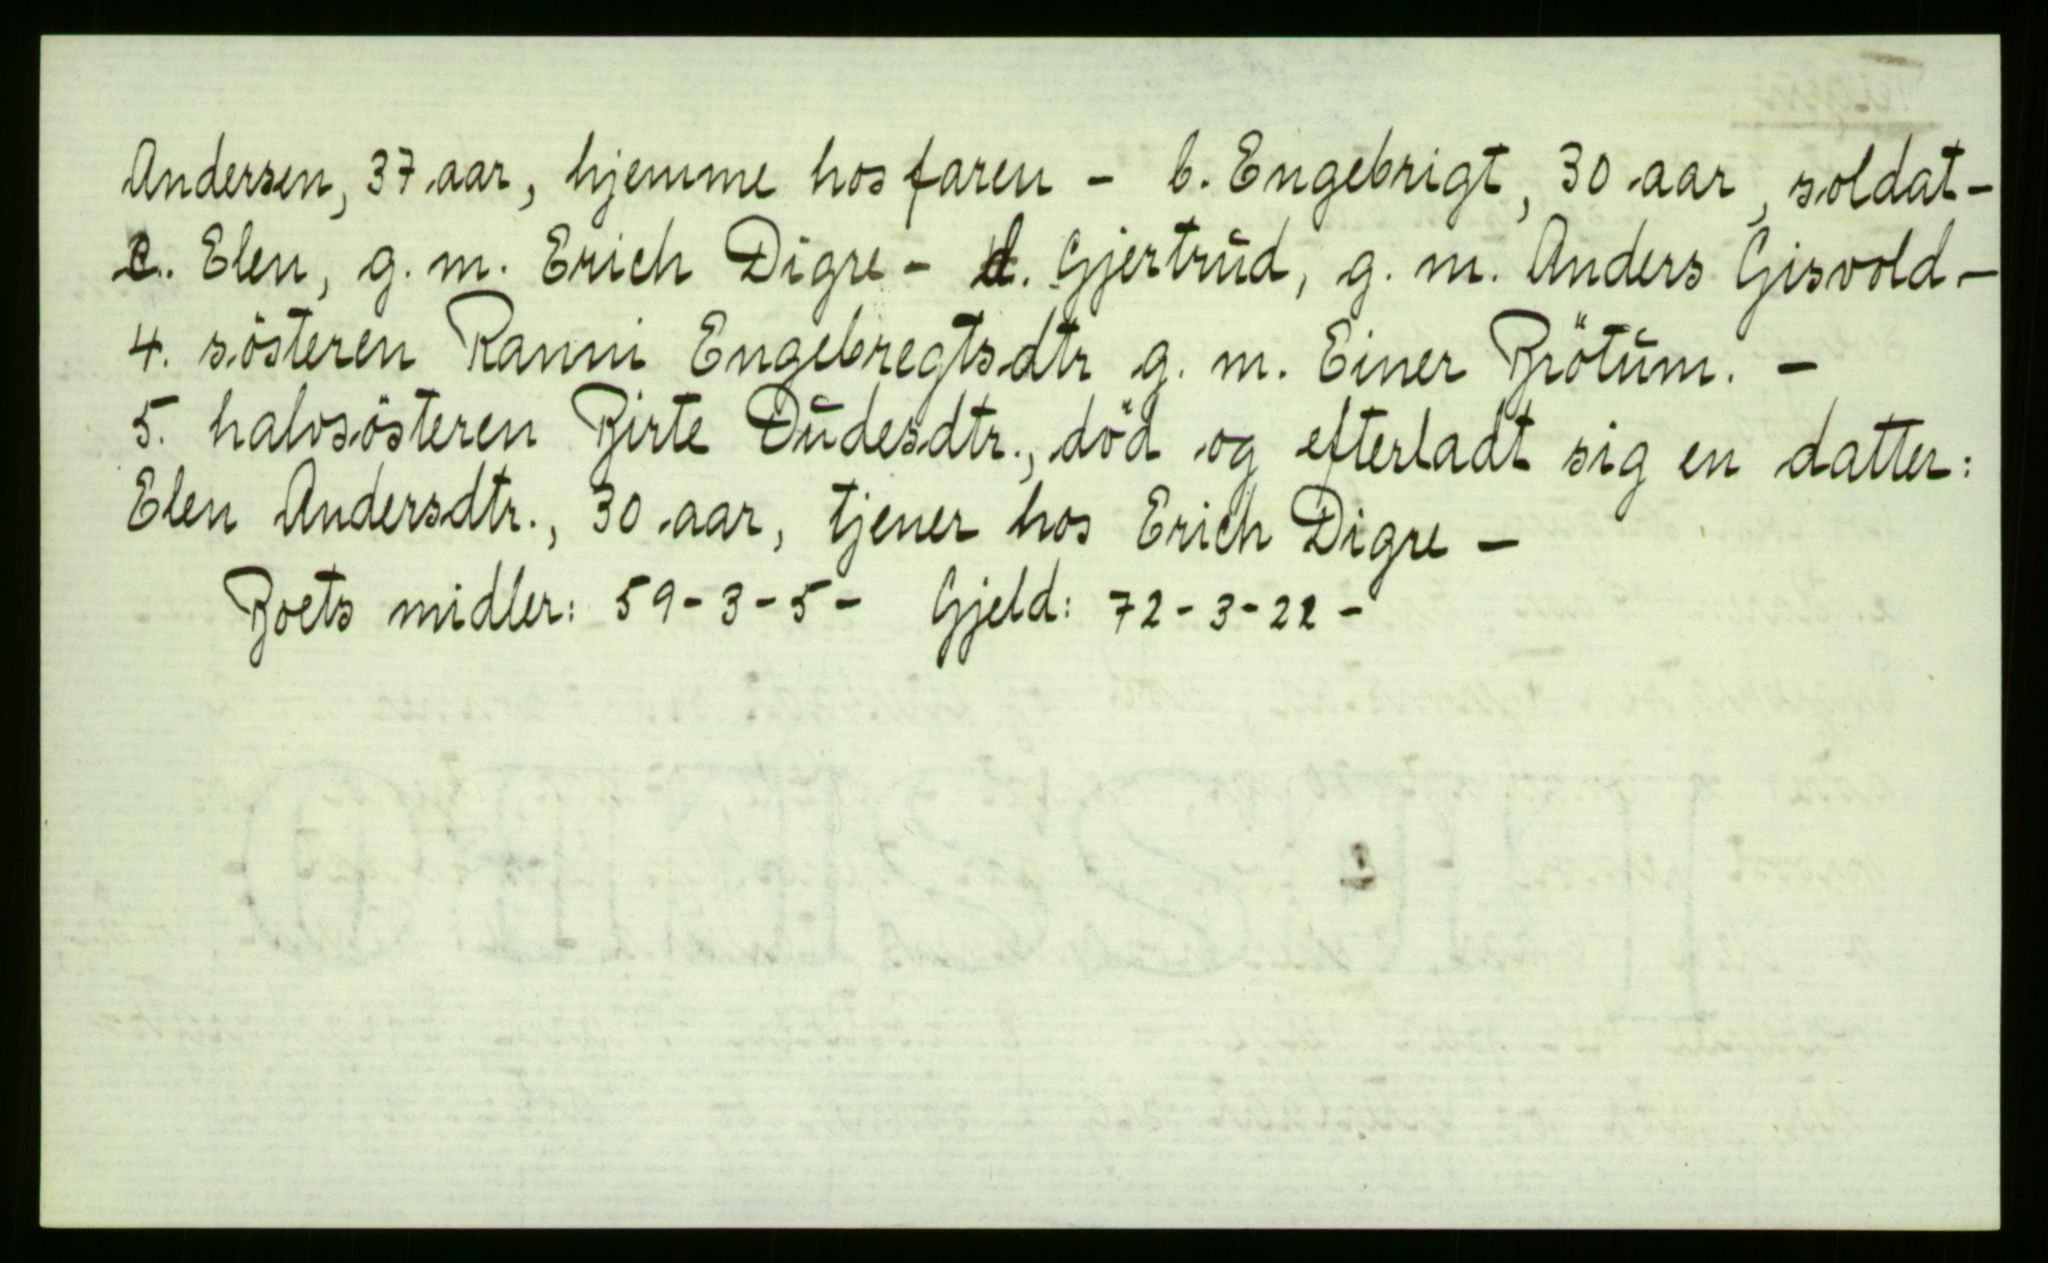 Andersen, 37 aar, hjemme hos faren - b. Engebrigt, 30 aar, soldat -
c. Elen, g. m. Erich Digre - d. Gjertrud, g. m. Anders Gisvold -
4. søsteren Ranni Engebregtsdtr g. m. Einer Brøtum. -
5. halvsøsteren Birte Dudesdtr., død og efterladt sig en datter:
Elen Andersdtr., 30 aar, tjener hos Erich Digre -
Boets midler: 59-3-5- Gjeld: 72-3-22-